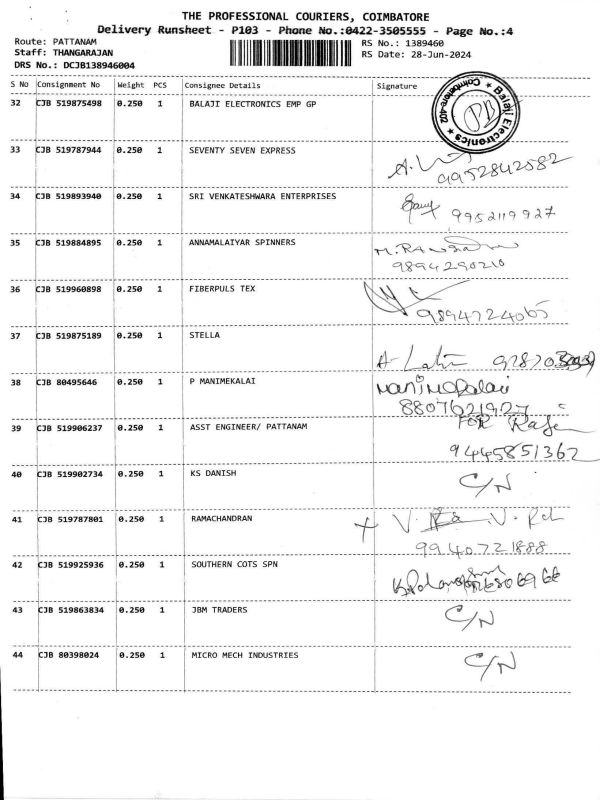 THE PROFESSIONAL COURIERS, COIMBATORE
Delivery Runsheet - P103 - Phone No.:0422-3505555 - Page No.:4
Route: PATTANAM RS No.: 1389460
Staff: THANGARAJAN RS Date: 28-Jun-2024
DRS No.: DCJB138946004
S No Consignment No Weight PCS Consignee Details Signature
32 CJB 519875498 0.250 1 BALAJI ELECTRONICS EMP GP
Balaji Electronics ★ Coimbatore-402 ★
33 CJB 519787944 0.250 1 SEVENTY SEVEN EXPRESS
9952842582
34 CJB 519893940 0.250 1 SRI VENKATESHWARA ENTERPRISES
9952119927
35 CJB 519884895 0.250 1 ANNAMALAIYAR SPINNERS
9894290210
36 CJB 519960898 0.250 1 FIBERPULS TEX
9894724065
37 CJB 519875189 0.250 1 STELLA
38 CJB 80495646 0.250 1 P MANIMEKALAI
8807621927
39 CJB 519906237 0.250 1 ASST ENGINEER/ PATTANAM
FOR
9445851362
40 CJB 519902734 0.250 1 KS DANISH C/N
41 CJB 519787801 0.250 1 RAMACHANDRAN
9940721888
42 CJB 519925936 0.250 1 SOUTHERN COTS SPN
43 CJB 519863834 0.250 1 JBM TRADERS C/N
44 CJB 80398024 0.250 1 MICRO MECH INDUSTRIES C/N